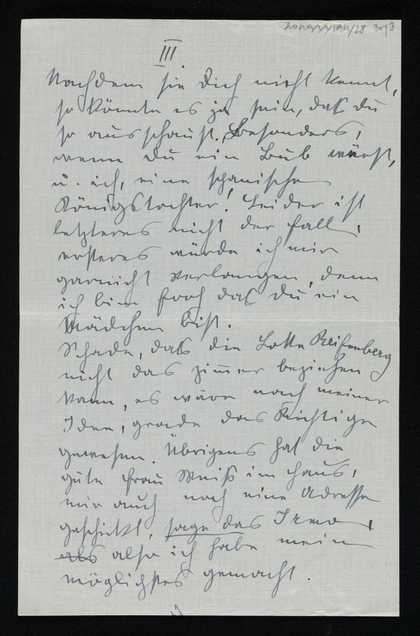 III.
Nachdem sie dich nicht kennt,
so könnte es ja sein, daß du
so ausschaust. Besonders,
wenn du ein Bub wärst,
u. ich, eine spanische
Königstochter! Leider ist
letzteres nicht der Fall,
ersteres würde ich mir
garnicht verlangen, denn
ich bin froh daß du ein
Mädchen bist.
Schade, daß die Lotte Reifenberg
nicht das Zimmer beziehen
kann, es wäre nach meiner
Idee, grade das Richtige
gewesen. Übrigens hat die
gute Frau Weiß im Haus,
mir auch noch eine Adresse
geschickt, sage das Irma,
also ich habe mein
möglichstes gemacht.